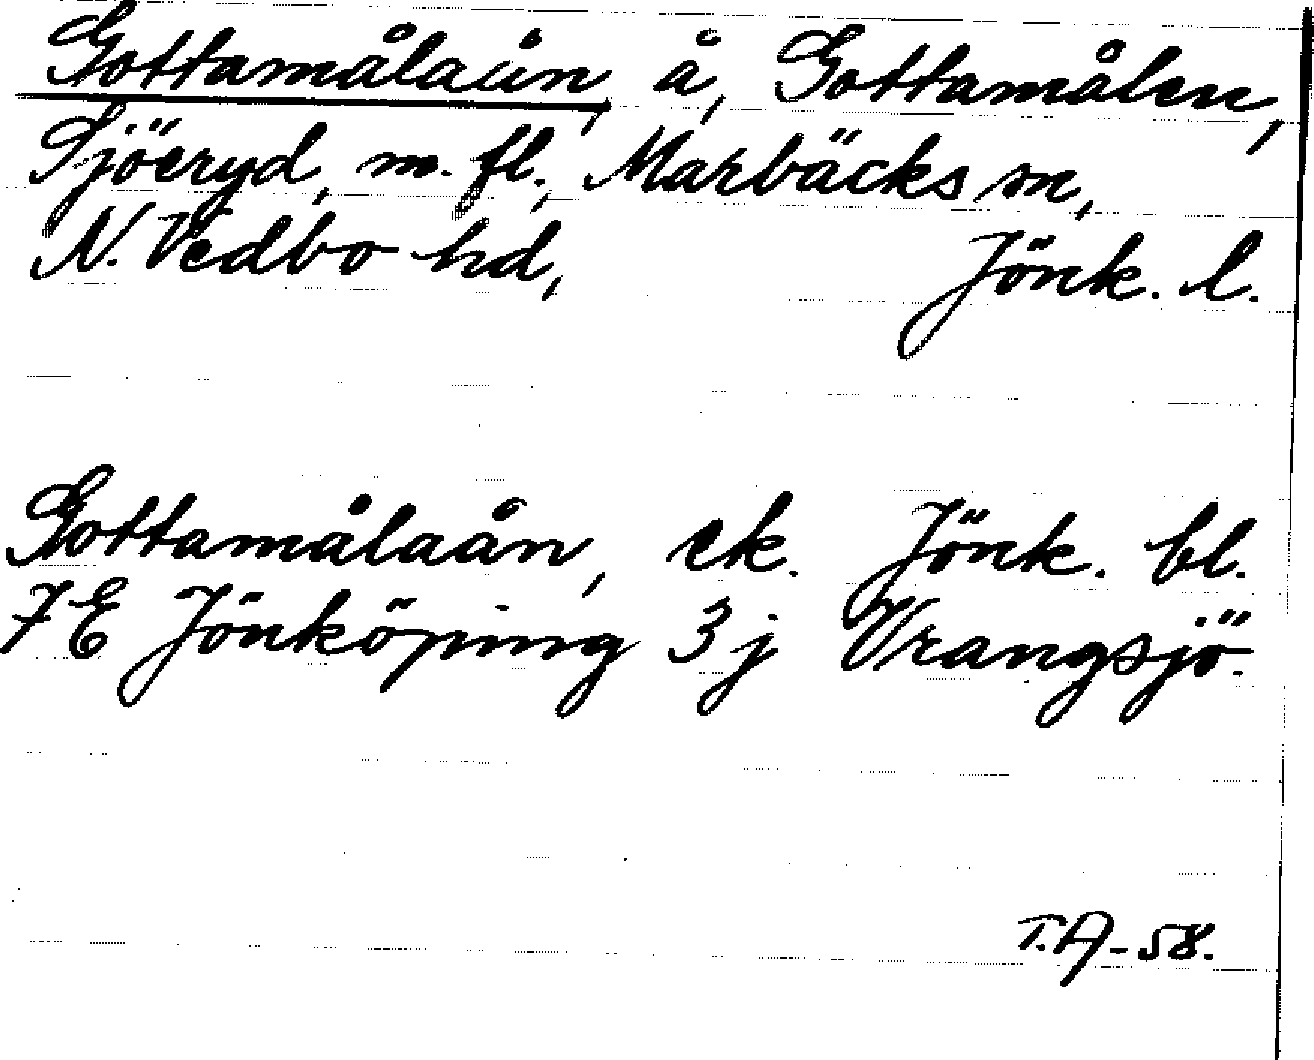 Gottamålaån, å, Gottamålen,
Sjöeryd, m. fl., Marbäcks sn,
N. Vedbo hd, Jönk. l.
Gottamålaån, ek. Jönk. bl.
7E Jönköping 3j Vrangsjö.
T.A-58.